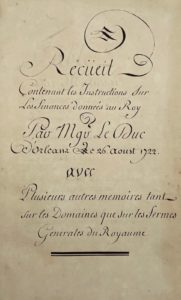 Recüeil
Contenant les Instructions sur
Les Finances données au Roy
Par Mgr. Le Duc
D'orleans Le 26 Aoust 1722.
avec
Plusieurs autres memoires tant
sur les Domaines que sur les Fermes
Generales du Royaume